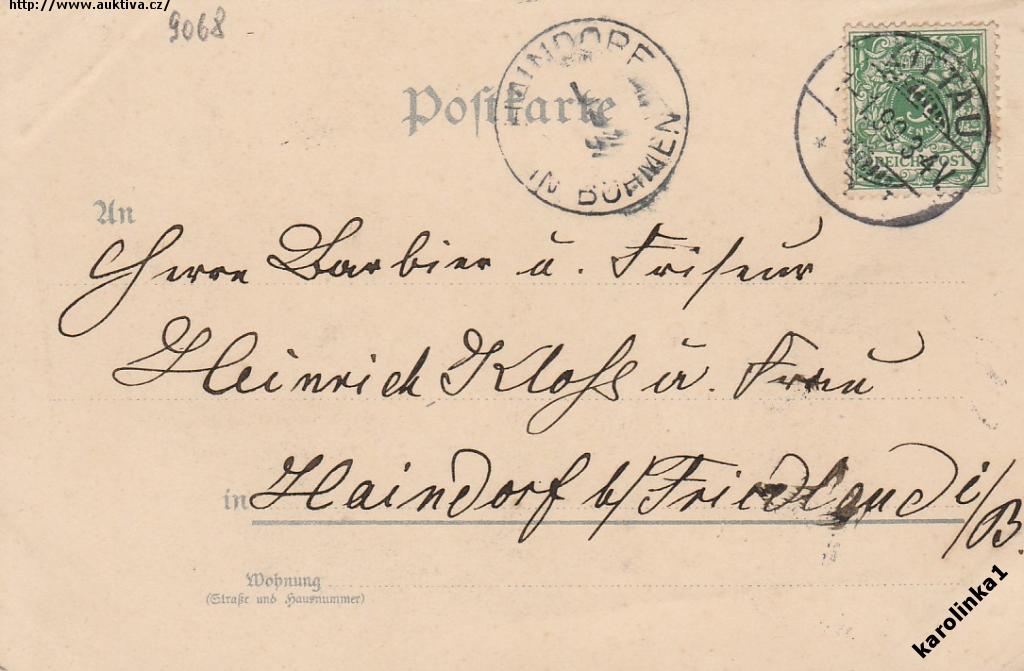 http://www.auktiva.cz/
9068
Postkarte
IN BÖHMEN
ZITTAU
99. 3-4N.
REICHSPOST
An
Herrn Barbier u. Friseur
Heinrich Klohs u. Frau
in Haindorf b/ Friedland i/B.
Wohnung
(Straße und Hausnummer)
karolinka1